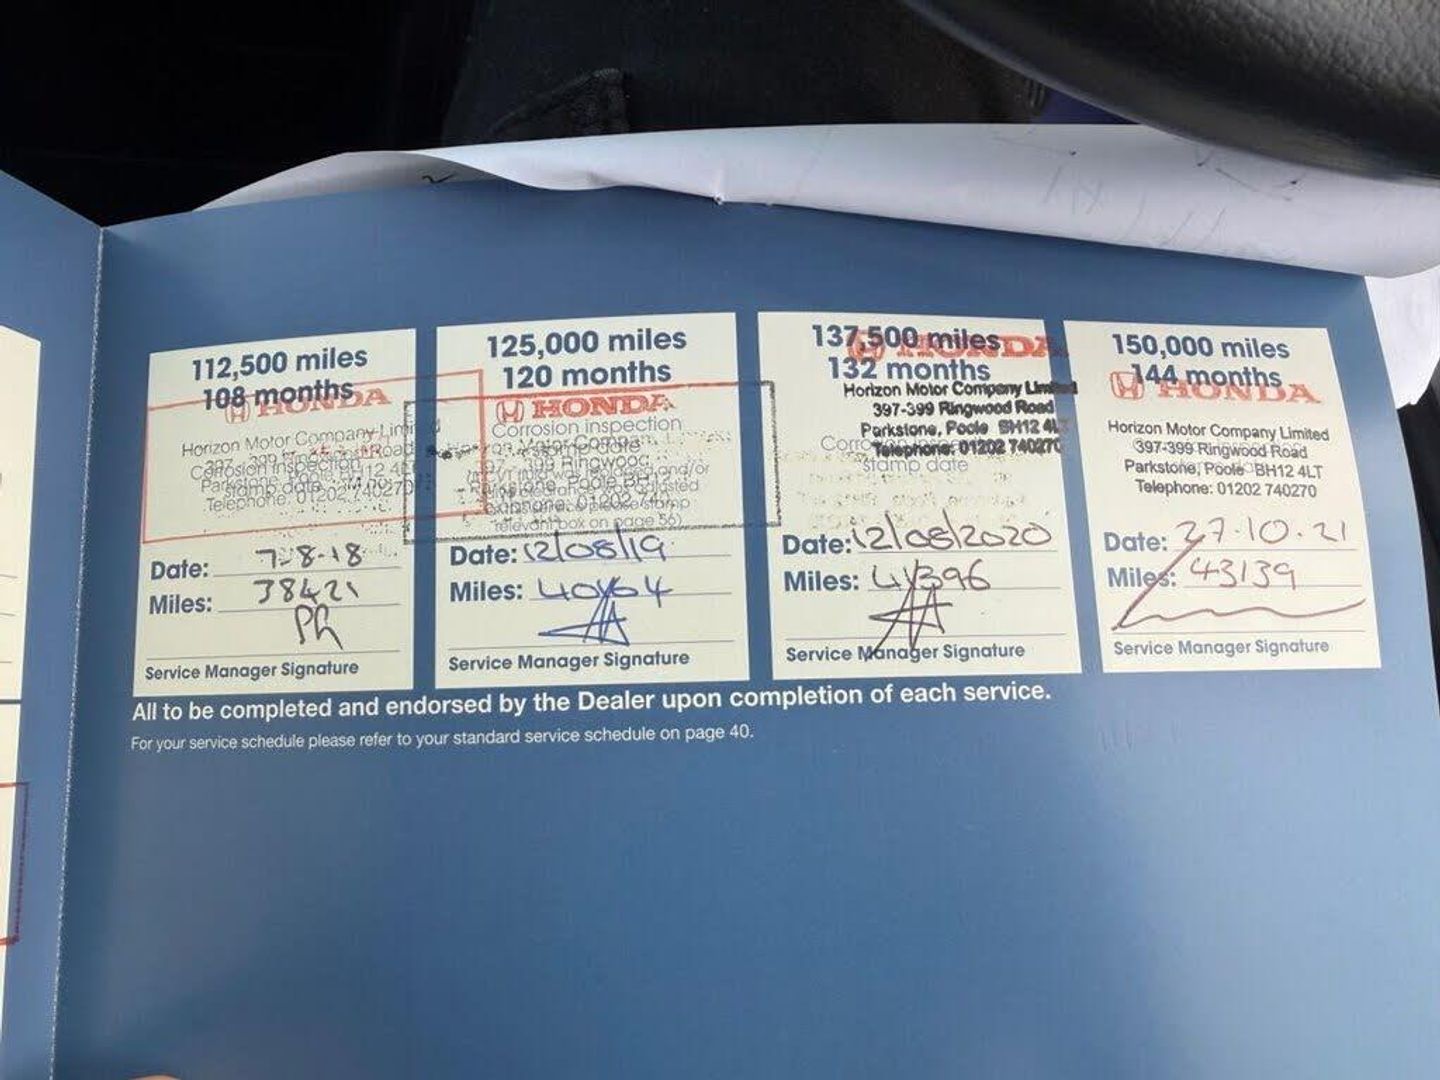 112,500 miles
108 months
HONDA
Horizon Motor Company Limited
Corrosion inspection
stamp date
Telephone: 01202 740270
Date: 7-8-18
Miles: 38421
PR
Service Manager Signature
125,000 miles
120 months
HONDA
Corrosion inspection
stamp date
Date: 12/08/19
Miles: 40464
Service Manager Signature
137,500 miles
HONDA
132 months
Horizon Motor Company Limited
397-399 Ringwood Road
Parkstone, Poole BH12 4L
Telephone: 01202 740270
stamp date
Date: 12/08/2020
Miles: 41396
Service Manager Signature
150,000 miles
144 months
HONDA
Horizon Motor Company Limited
397-399 Ringwood Road
Parkstone, Poole BH12 4LT
Telephone: 01202 740270
Date: 27.10.21
Miles: 43139
Service Manager Signature
All to be completed and endorsed by the Dealer upon completion of each service.
For your service schedule please refer to your standard service schedule on page 40.